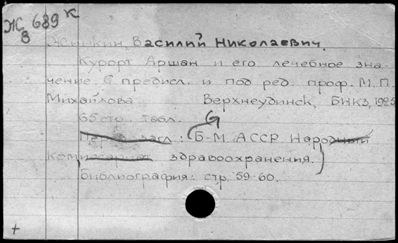 Ж 689 к
8
Василий Николаевич.
Курорт Аршан и его лечебное зна-
чение С предисл. и под ред. проф. М.П.
Михайлова Верхнеудинск, БНКЗ, 1925
65 стр. табл.
загл.: Б-М. АССР. Народный
здравоохранения.
Библиография: стр. 59-60.
+